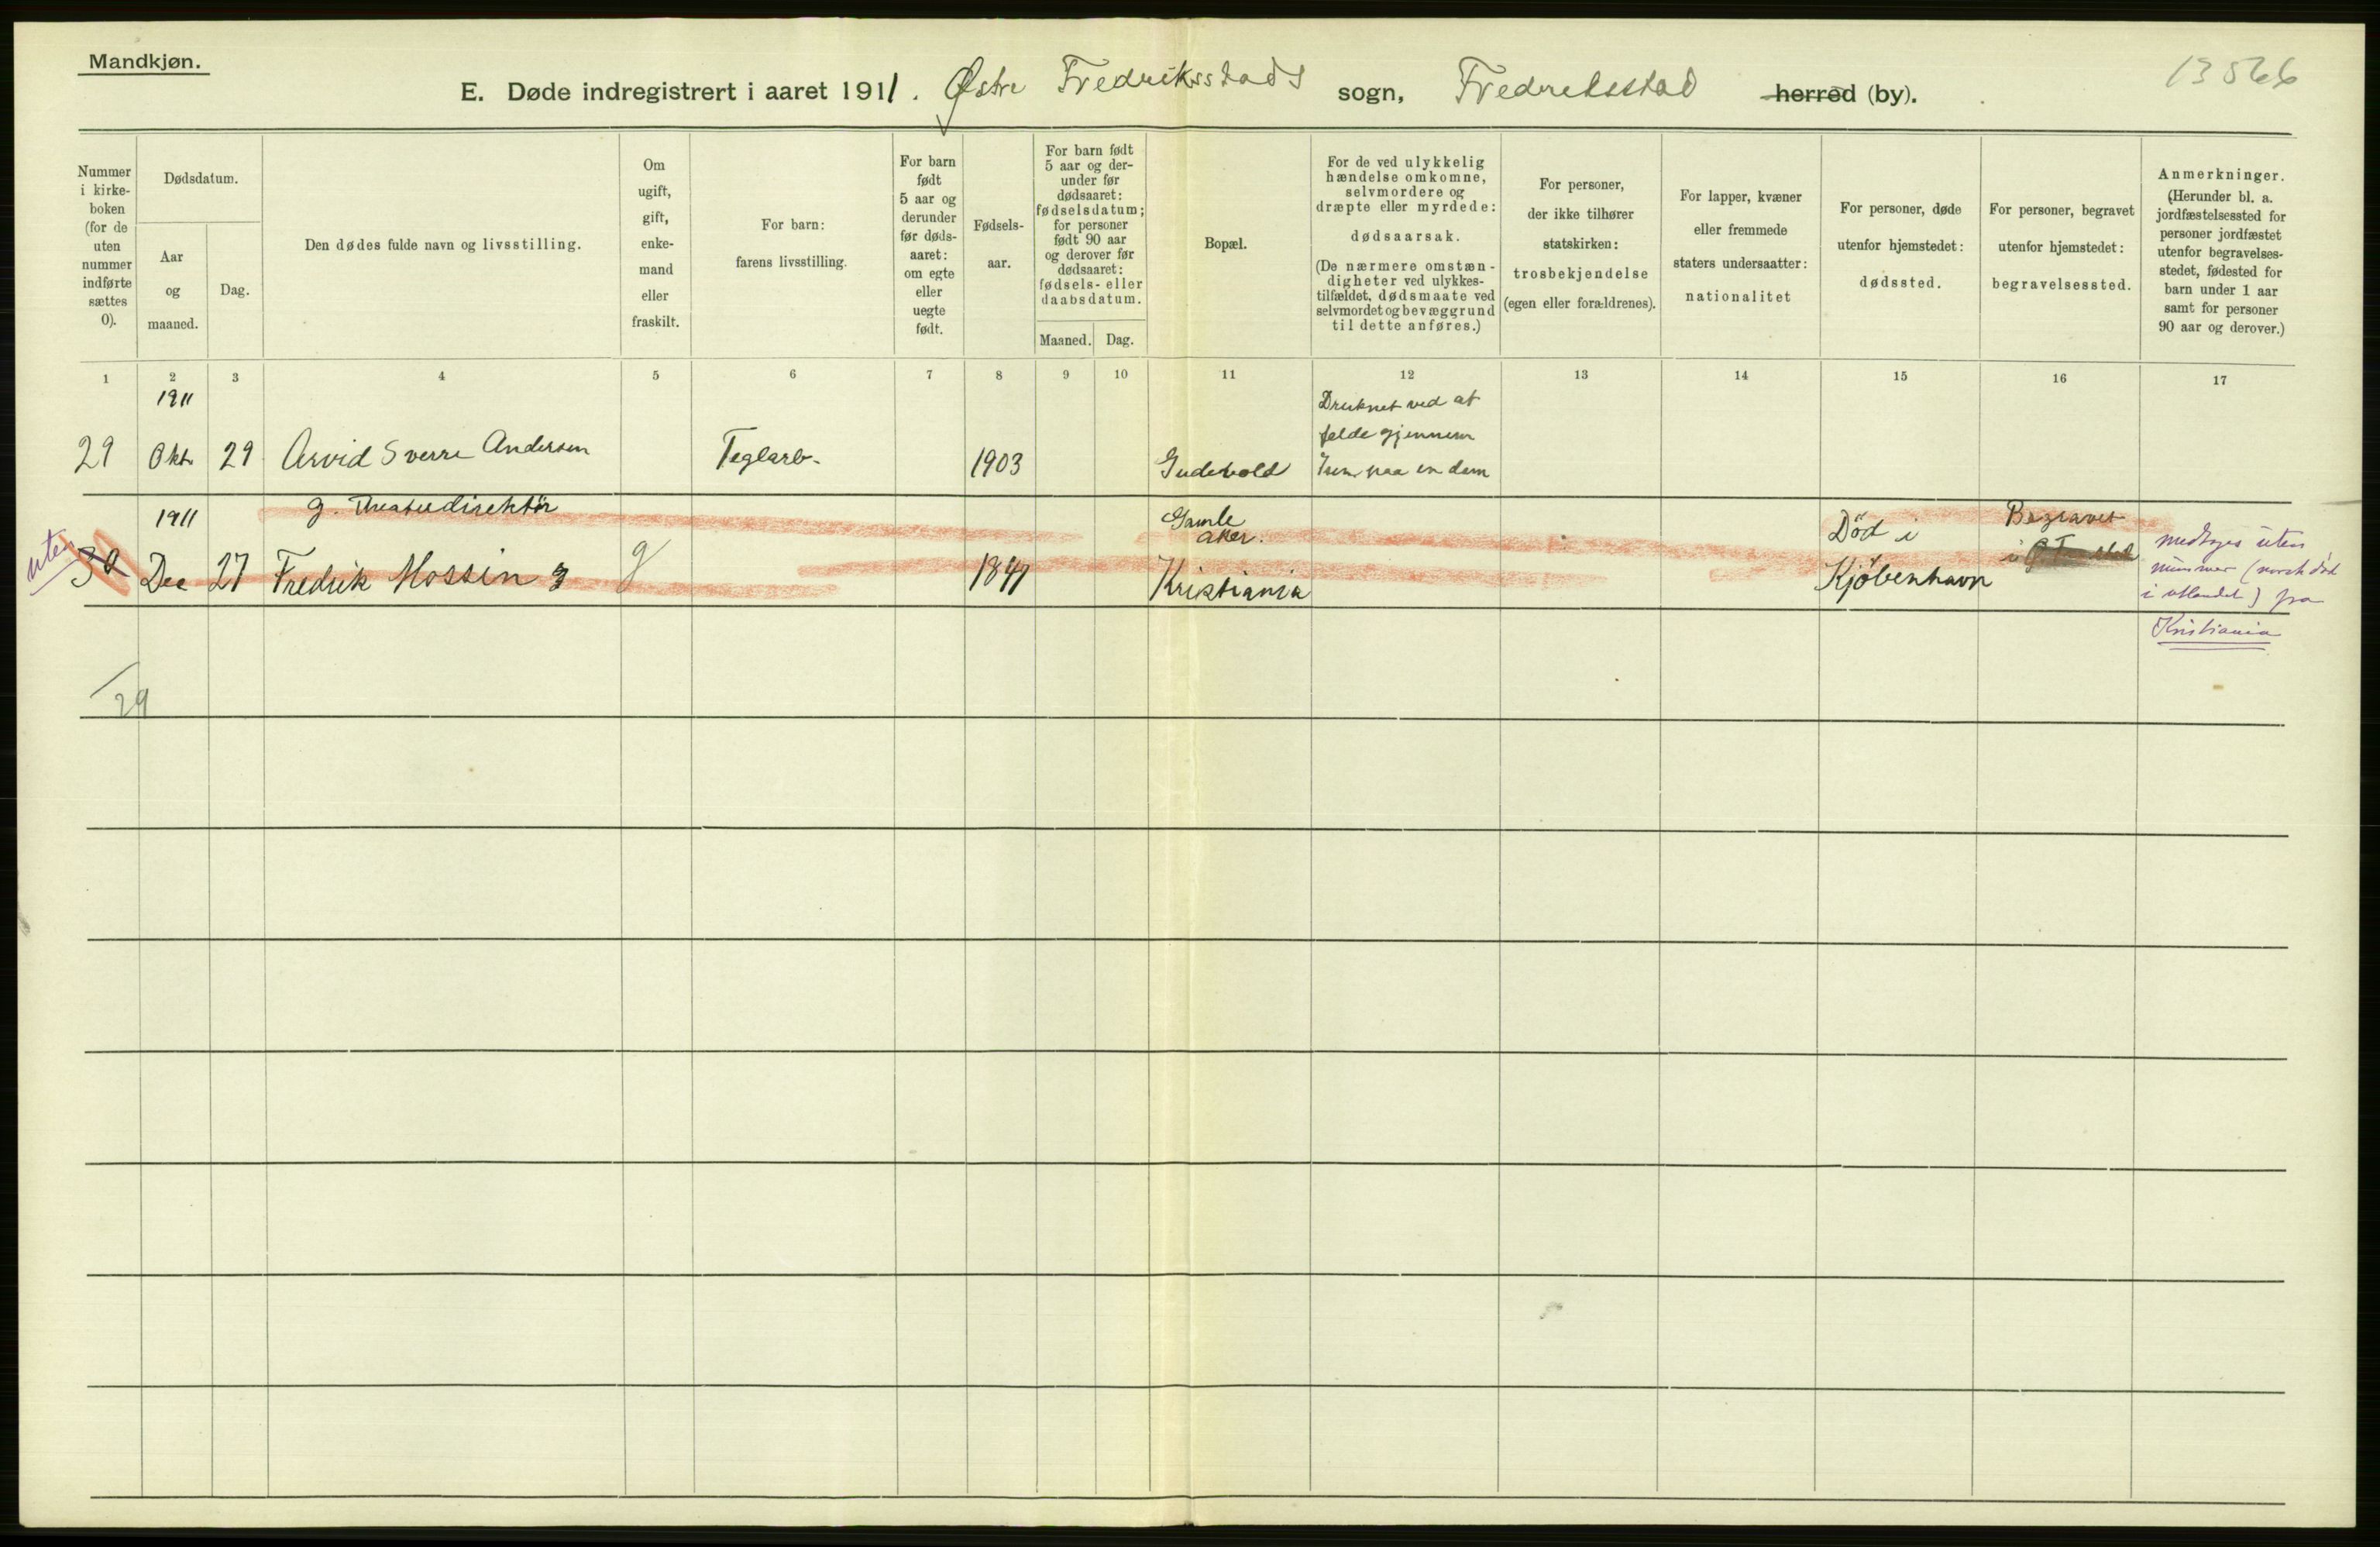 Mandkjøn.
13566
E. Døde indregistrert i aaret 1911. Østre Fredriksstads sogn, Fredrikstad herred (by).
Nummer i kirke-boken (for de uten nummer indførte sættes 0).
Dødsdatum.
Aar og maaned.
Dag.
Den dødes fulde navn og livsstilling.
Om ugift, gift, enke-mand eller fraskilt.
For barn: farens livsstilling.
For barn født 5 aar og derunder før døds-aaret: om egte eller uegte født.
Fødsels-aar.
For barn født 5 aar og der-under før dødsaaret: fødselsdatum; for personer født 90 aar og derover før dødsaaret: fødsels- eller daabsdatum.
Maaned. Dag.
Bopæl.
For de ved ulykkelig hændelse omkomne, selvmordere og dræpte eller myrdede: dødsaarsak.
(De nærmere omstæn-digheter ved ulykkes-tilfældet, dødsmaate ved selvmordet og bevæggrund til dette anføres.)
For personer, der ikke tilhører statskirken: trosbekjendelse (egen eller forældrenes).
For lapper, kvæner eller fremmede staters undersaatter: nationalitet
For personer, døde utenfor hjemstedet: dødssted.
For personer, begravet utenfor hjemstedet: begravelsessted.
Anmerkninger.
(Herunder bl. a. jordfæstelsessted for personer jordfæstet utenfor begravelses-stedet, fødested for barn under 1 aar samt for personer 90 aar og derover.)
1 2 3 4 5 6 7 8 9 10 11 12 13 14 15 16 17
1911
Druknet ved at
falde gjennem
29 Okt. 29 Arvid Sverre Andersen Teglarb. 1903 Gudevold Isen paa en dam
1911 g. Theaterdirektør Gamle Aker. Død i Begravet
uten 30 Dec 27 Fredrik Mossin g 1841 Kristiania Kjøbenhavn i
medtages uten
nummer (norsk død
i utlandet) fra
Kristiania
29